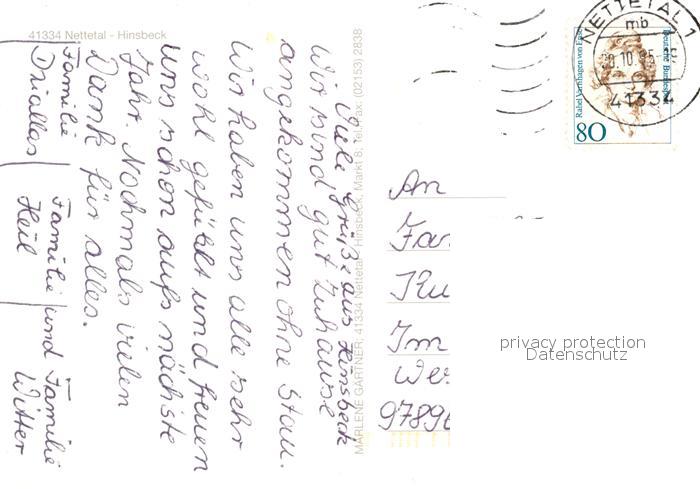 41334 Nettetal - Hinsbeck
Viele Grüße aus Hinsbeck
Wir sind gut zuhause
angekommen ohne Stau.
Wir haben uns alle sehr
wohl gefühlt und freuen
uns schon aufs nächste
Jahr. Nochmals vielen
Dank für alles.
Familie
Driallas
Familie
Heil
und Familie
Witter
MARLENE GÄRTNER; 41334 Nettetal - Hinsbeck, Markt 8, Tel./Fax: (02153) 2838
NETTETAL 1
mb
10.95
41334
Deutsche Bundespost
Rahel Varnhagen von Ense
80
An
Fa
Ku
Im
We
9789
privacy protection
Datenschutz